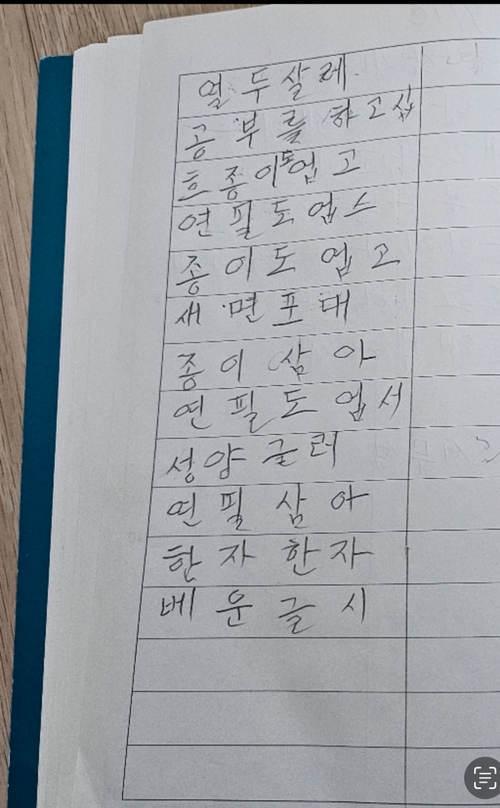 열두살레
공부를 하고십
흐종이도업고
연필도업스
종이도 업고
새면포대
종이 삼아
연필도업서
성양글러
연필삼아
한자한자
베운글시